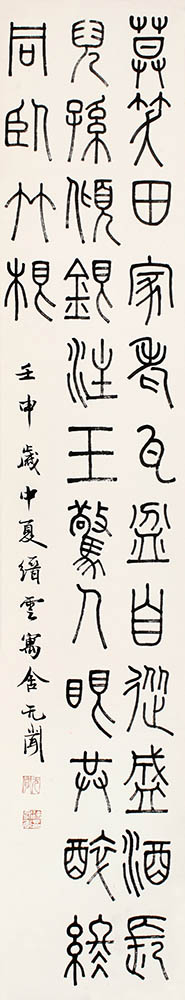 莫笑田家老瓦盆自從盛酒長
兒孫傾銀注玉驚人眼共醉終
同臥竹根
壬申歲中夏縉雲寓舍无聞